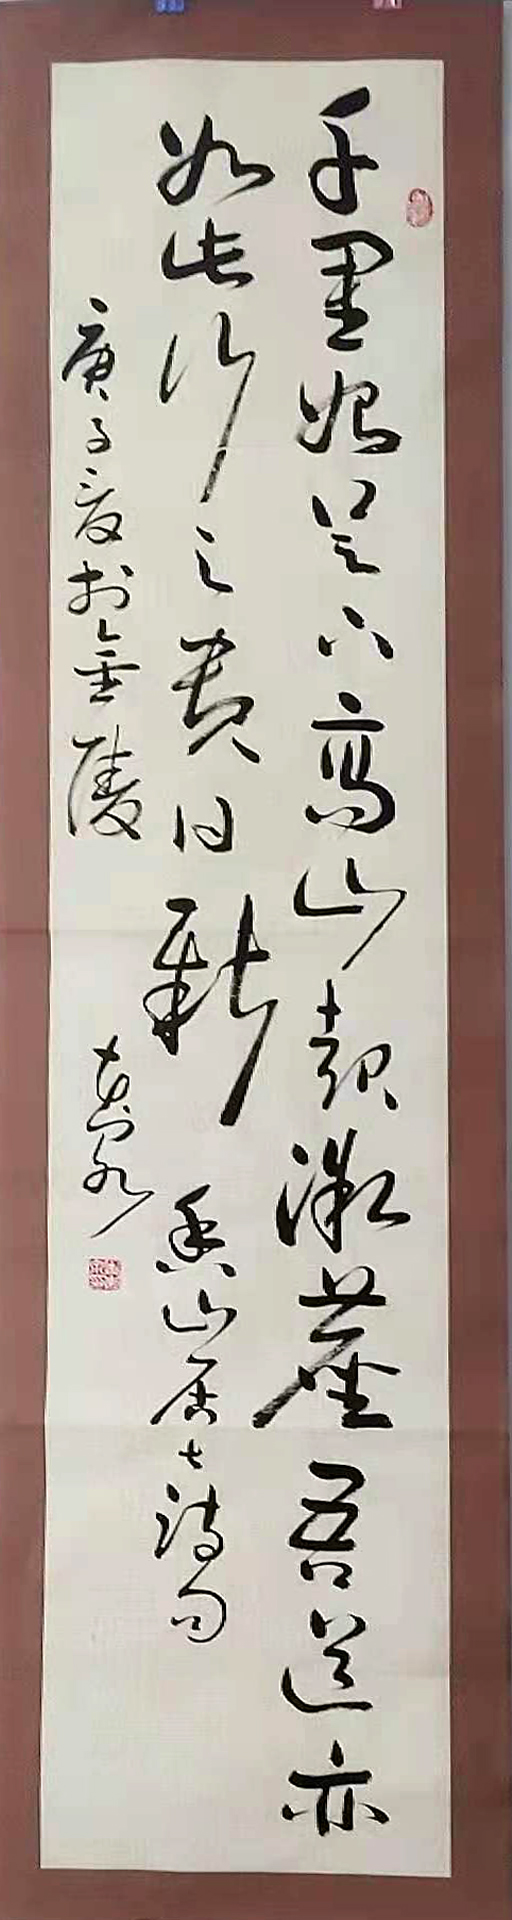 千里始足下高山起微尘吾道亦
如此行之贵日新 香山居士诗句
庚子夏于金陵